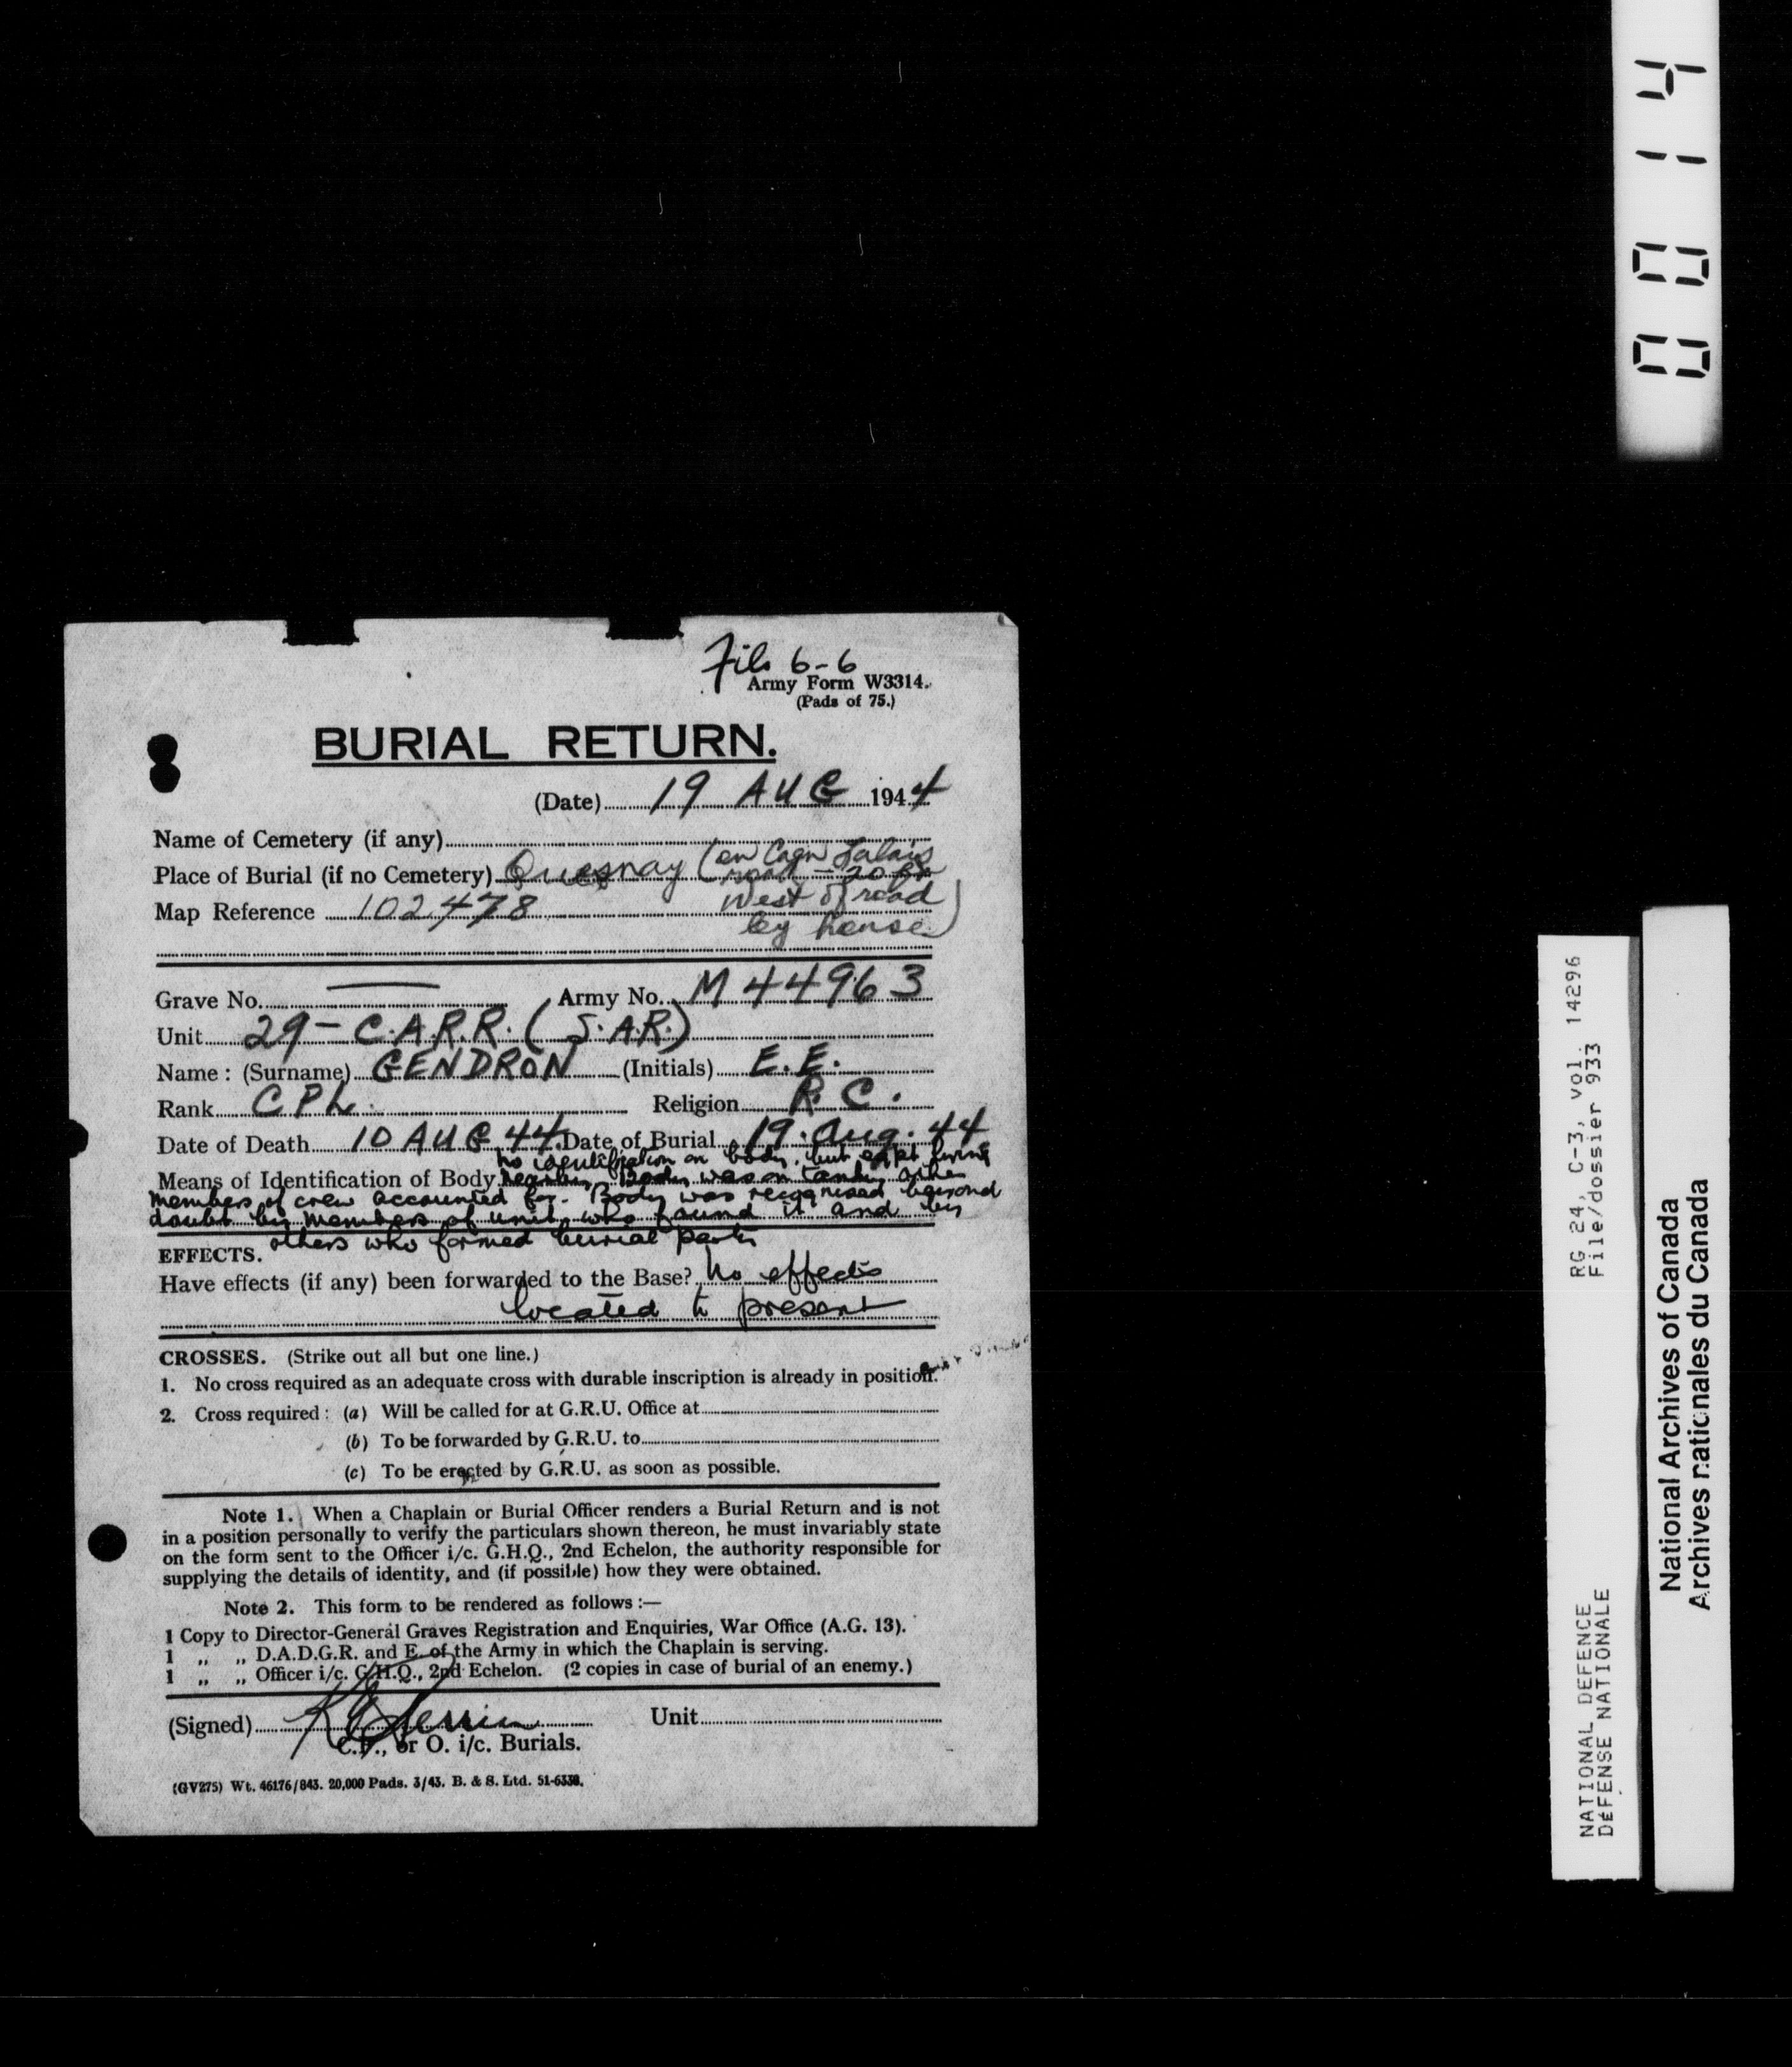 File 6-6
Army Form W3314.
(Pads of 75.)
BURIAL RETURN.
(Date) 19 AUG 1944
Name of Cemetery (if any)
Place of Burial (if no Cemetery) Quesnay (on Caen Falaise
road - 20
Map Reference 102478 West of road
by house)
Grave No. — Army No. M 44963
Unit 29 - C.A.R.R. (S.A.R.)
Name : (Surname) GENDRON (Initials) E.E.
Rank CPL. Religion R.C.
Date of Death 10 AUG 44. Date of Burial 19. Aug. 44
No identification on body, but
Means of Identification of Body Body was on tank, other
members of crew accounted for. Body was recognised beyond
doubt by members of unit who found it and by
others who formed burial party
EFFECTS.
Have effects (if any) been forwarded to the Base? No effects
located to present
CROSSES. (Strike out all but one line.)
1. No cross required as an adequate cross with durable inscription is already in position.
2. Cross required : (a) Will be called for at G.R.U. Office at
(b) To be forwarded by G.R.U. to
(c) To be erected by G.R.U. as soon as possible.
Note 1. When a Chaplain or Burial Officer renders a Burial Return and is not
in a position personally to verify the particulars shown thereon, he must invariably state
on the form sent to the Officer i/c. G.H.Q., 2nd Echelon, the authority responsible for
supplying the details of identity, and (if possible) how they were obtained.
Note 2. This form to be rendered as follows :—
1 Copy to Director-General Graves Registration and Enquiries, War Office (A.G. 13).
1 „ „ D.A.D.G.R. and E. of the Army in which the Chaplain is serving.
1 „ „ Officer i/c. G.H.Q., 2nd Echelon. (2 copies in case of burial of an enemy.)
(Signed) Unit
C.F., or O. i/c. Burials.
(GV275) Wt. 46176/843. 20,000 Pads. 3/43. B. & S. Ltd. 51-6338.
00114
NATIONAL DEFENCE RG 24, C-3, vol. 14296
DÉFENSE NATIONALE File/dossier 933
National Archives of Canada
Archives nationales du Canada